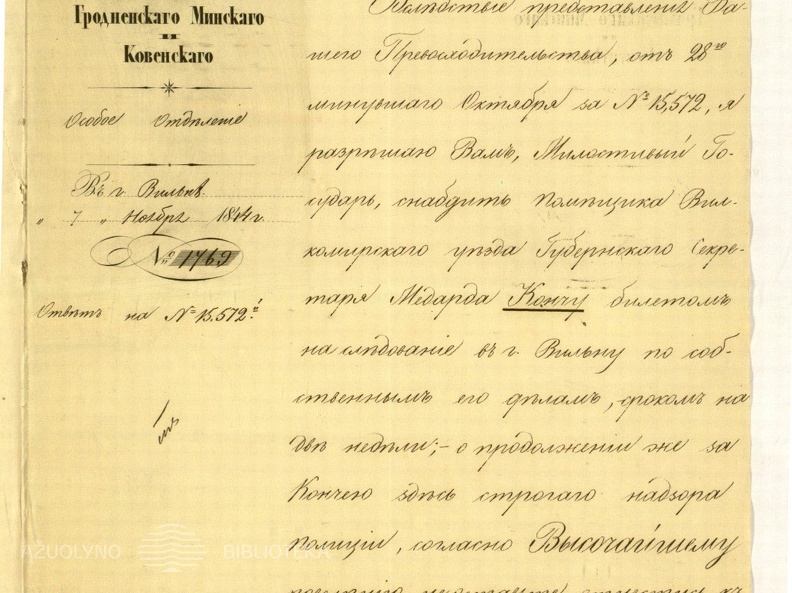 Гродненскаго Минскаго
и
Ковенскаго
Особое Отдѣленіе
Въ г. Вильнѣ.
„ 7 „ Ноября 1844 г.
№ 1769
Отвѣтъ на № 15,572.й
Вслѣдствіе представленія Ва-
шего Превосходительства, отъ 28го
минувшаго Октября за № 15,572, я
разрѣшаю Вамъ, Милостивый Го-
сударь, снабдить помѣщика Вил-
комирскаго уѣзда Губернскаго Секре-
таря Медарда Кончу билетомъ
на слѣдованіе въ г. Вильну по соб-
ственнымъ его дѣламъ, срокомъ на
двѣ недѣли; – о продолженіи же за
Кончею здѣсь строгаго надзора
полиціи, согласно Высочайшему
AŽUOLYNO BIBLIOTEKA